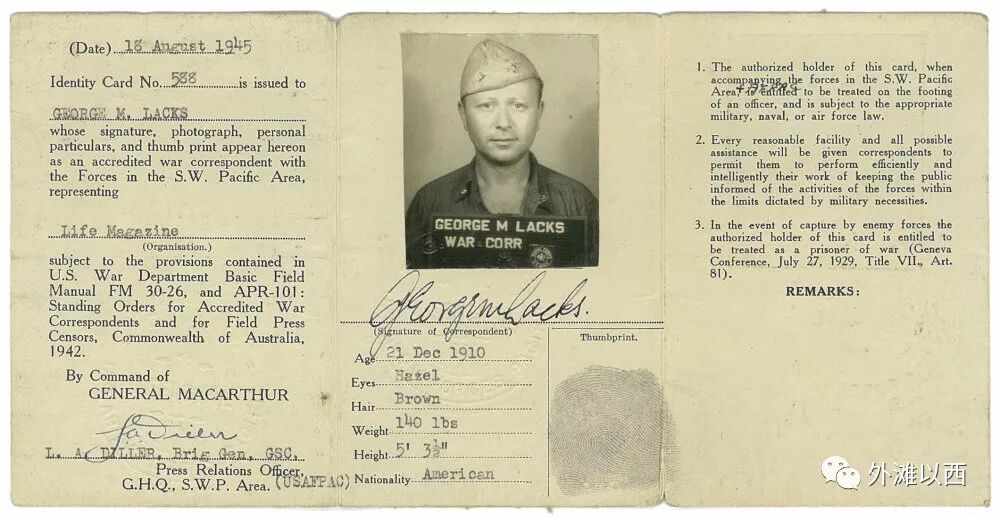 (Date) 18 August 1945
Identity Card No. 588 is issued to
GEORGE M. LACKS
whose signature, photograph, personal
particulars, and thumb print appear hereon
as an accredited war correspondent with
the Forces in the S.W. Pacific Area,
representing
Life Magazine
(Organisation.)
subject to the provisions contained in
U.S. War Department Basic Field
Manual FM 30-26, and APR-101:
Standing Orders for Accredited War
Correspondents and for Field Press
Censors, Commonwealth of Australia,
1942.
By Command of
GENERAL MACARTHUR
L. A. DILLER, Brig Gen, GSC,
Press Relations Officer,
G.H.Q., S.W.P. Area. (USAFPAC)
GEORGE M LACKS
WAR CORR
George M Lacks.
(Signature of Correspondent)
Age 21 Dec 1910
Eyes Hazel
Hair Brown
Weight 140 lbs
Height 5' 3½"
Nationality American
Thumbprint.
1. The authorized holder of this card, when
accompanying the forces in the S.W. Pacific
Area, is entitled to be treated on the footing
of an officer, and is subject to the appropriate
military, naval, or air force law.
2. Every reasonable facility and all possible
assistance will be given correspondents to
permit them to perform efficiently and
intelligently their work of keeping the public
informed of the activities of the forces within
the limits dictated by military necessities.
3. In the event of capture by enemy forces the
authorized holder of this card is entitled to
be treated as a prisoner of war (Geneva
Conference, July 27, 1929, Title VII., Art.
81).
REMARKS:
外滩以西